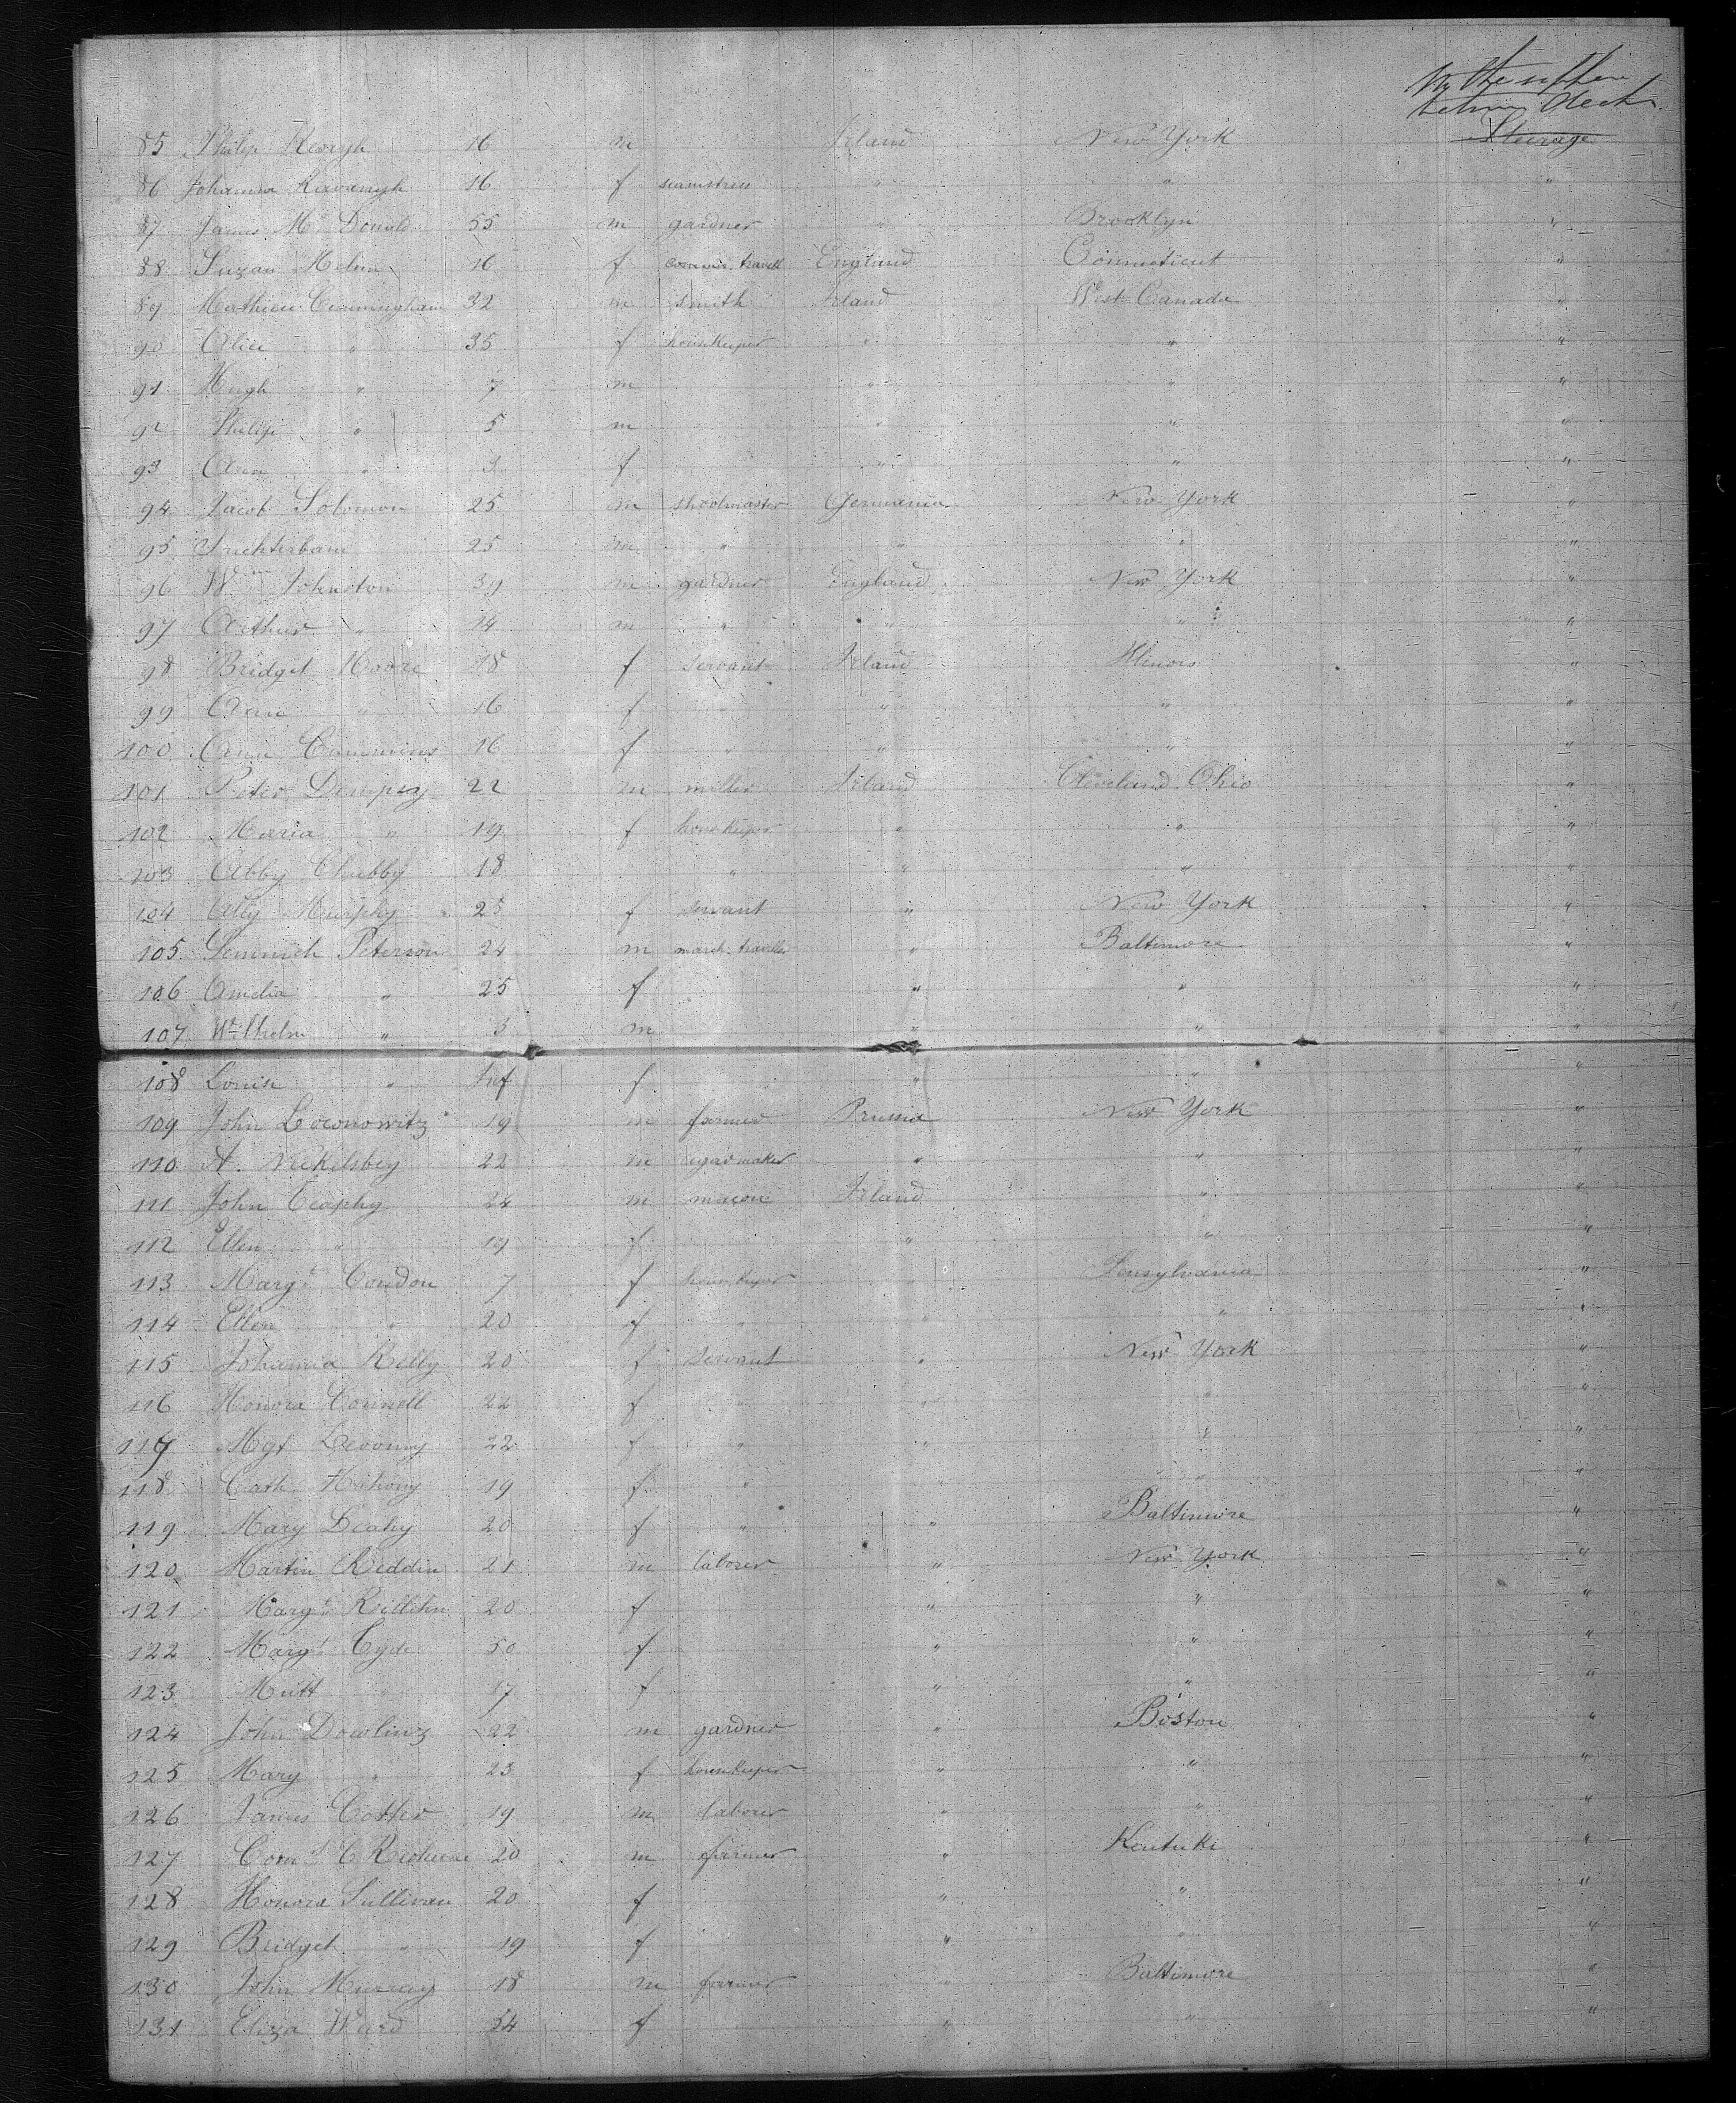 In the upper
between deck
Steerage
85 Philip Keorgh 16 m Irland New York
86 Johanna Kavanagh 16 f seamstress " " "
87 James McDonald 55 m gardner " Brooklyn "
88 Suzan 16 f travell England Connecticut "
89 Mathieu Cunningham 32 m smith Irland West Canada "
90 Alice " 35 f housekeeper " " "
91 Hugh " 7 m " " "
92 Philip " 5 m " " "
93 Ann " 3 f " " "
94 Jacob Solomon 25 m shoolmaster Germania New York "
95 25 m " " " "
96 Wm Johnston 39 m gardner England New York "
97 Arthur " 14 m " " " "
98 Bridget Moore 18 f servant Irland Illinois "
99 Ann " 16 f " " " "
100 Ann Cummins 16 f " " " "
101 Peter Dempsey 22 m miller Irland Cleveland Ohio "
102 Maria " 19 f housekeeper " " "
103 Abby Chubby 18 " " " "
104 Aley Murphy 25 f servant " New York "
105 Peterson 24 m march. traveller " Baltimore "
106 Amelia " 25 f " " "
107 Wilhelm " 3 m " " "
108 Louise " Inf f " " "
109 John Loconowitz 19 m farmer Prussia New York "
110 A. Nickelsbey 22 m cigarmaker " " "
111 John Ceaphy 24 m macon Irland " "
112 Ellen " 19 f " " "
113 Margt Condon 7 f housekeeper " Pensylvania "
114 Ellen " 20 f " " " "
115 Johanna Kelly 20 f servant " New York "
116 Honora Connell 22 f " " " "
117 Mgt 22 f " " " "
118 Cath. Mahony 19 f " " " "
119 Mary Leahy 20 f " " Baltimore "
120 Martin Reddin 21 m laborer " New York "
121 Margt 20 f " " "
122 Margt Cyde 50 f " " "
123 Mutt " 17 f " " "
124 John Dowling 22 m gardner " Boston "
125 Mary " 23 f housekeeper " " "
126 James Cotter 19 m laborer " " "
127 20 m farmer " Kentuki "
128 Honora Sullivan 20 f " " "
129 Bridget " 19 f " " "
130 John Murray 18 m farmer " Baltimore "
131 Eliza Ward 54 f " " "